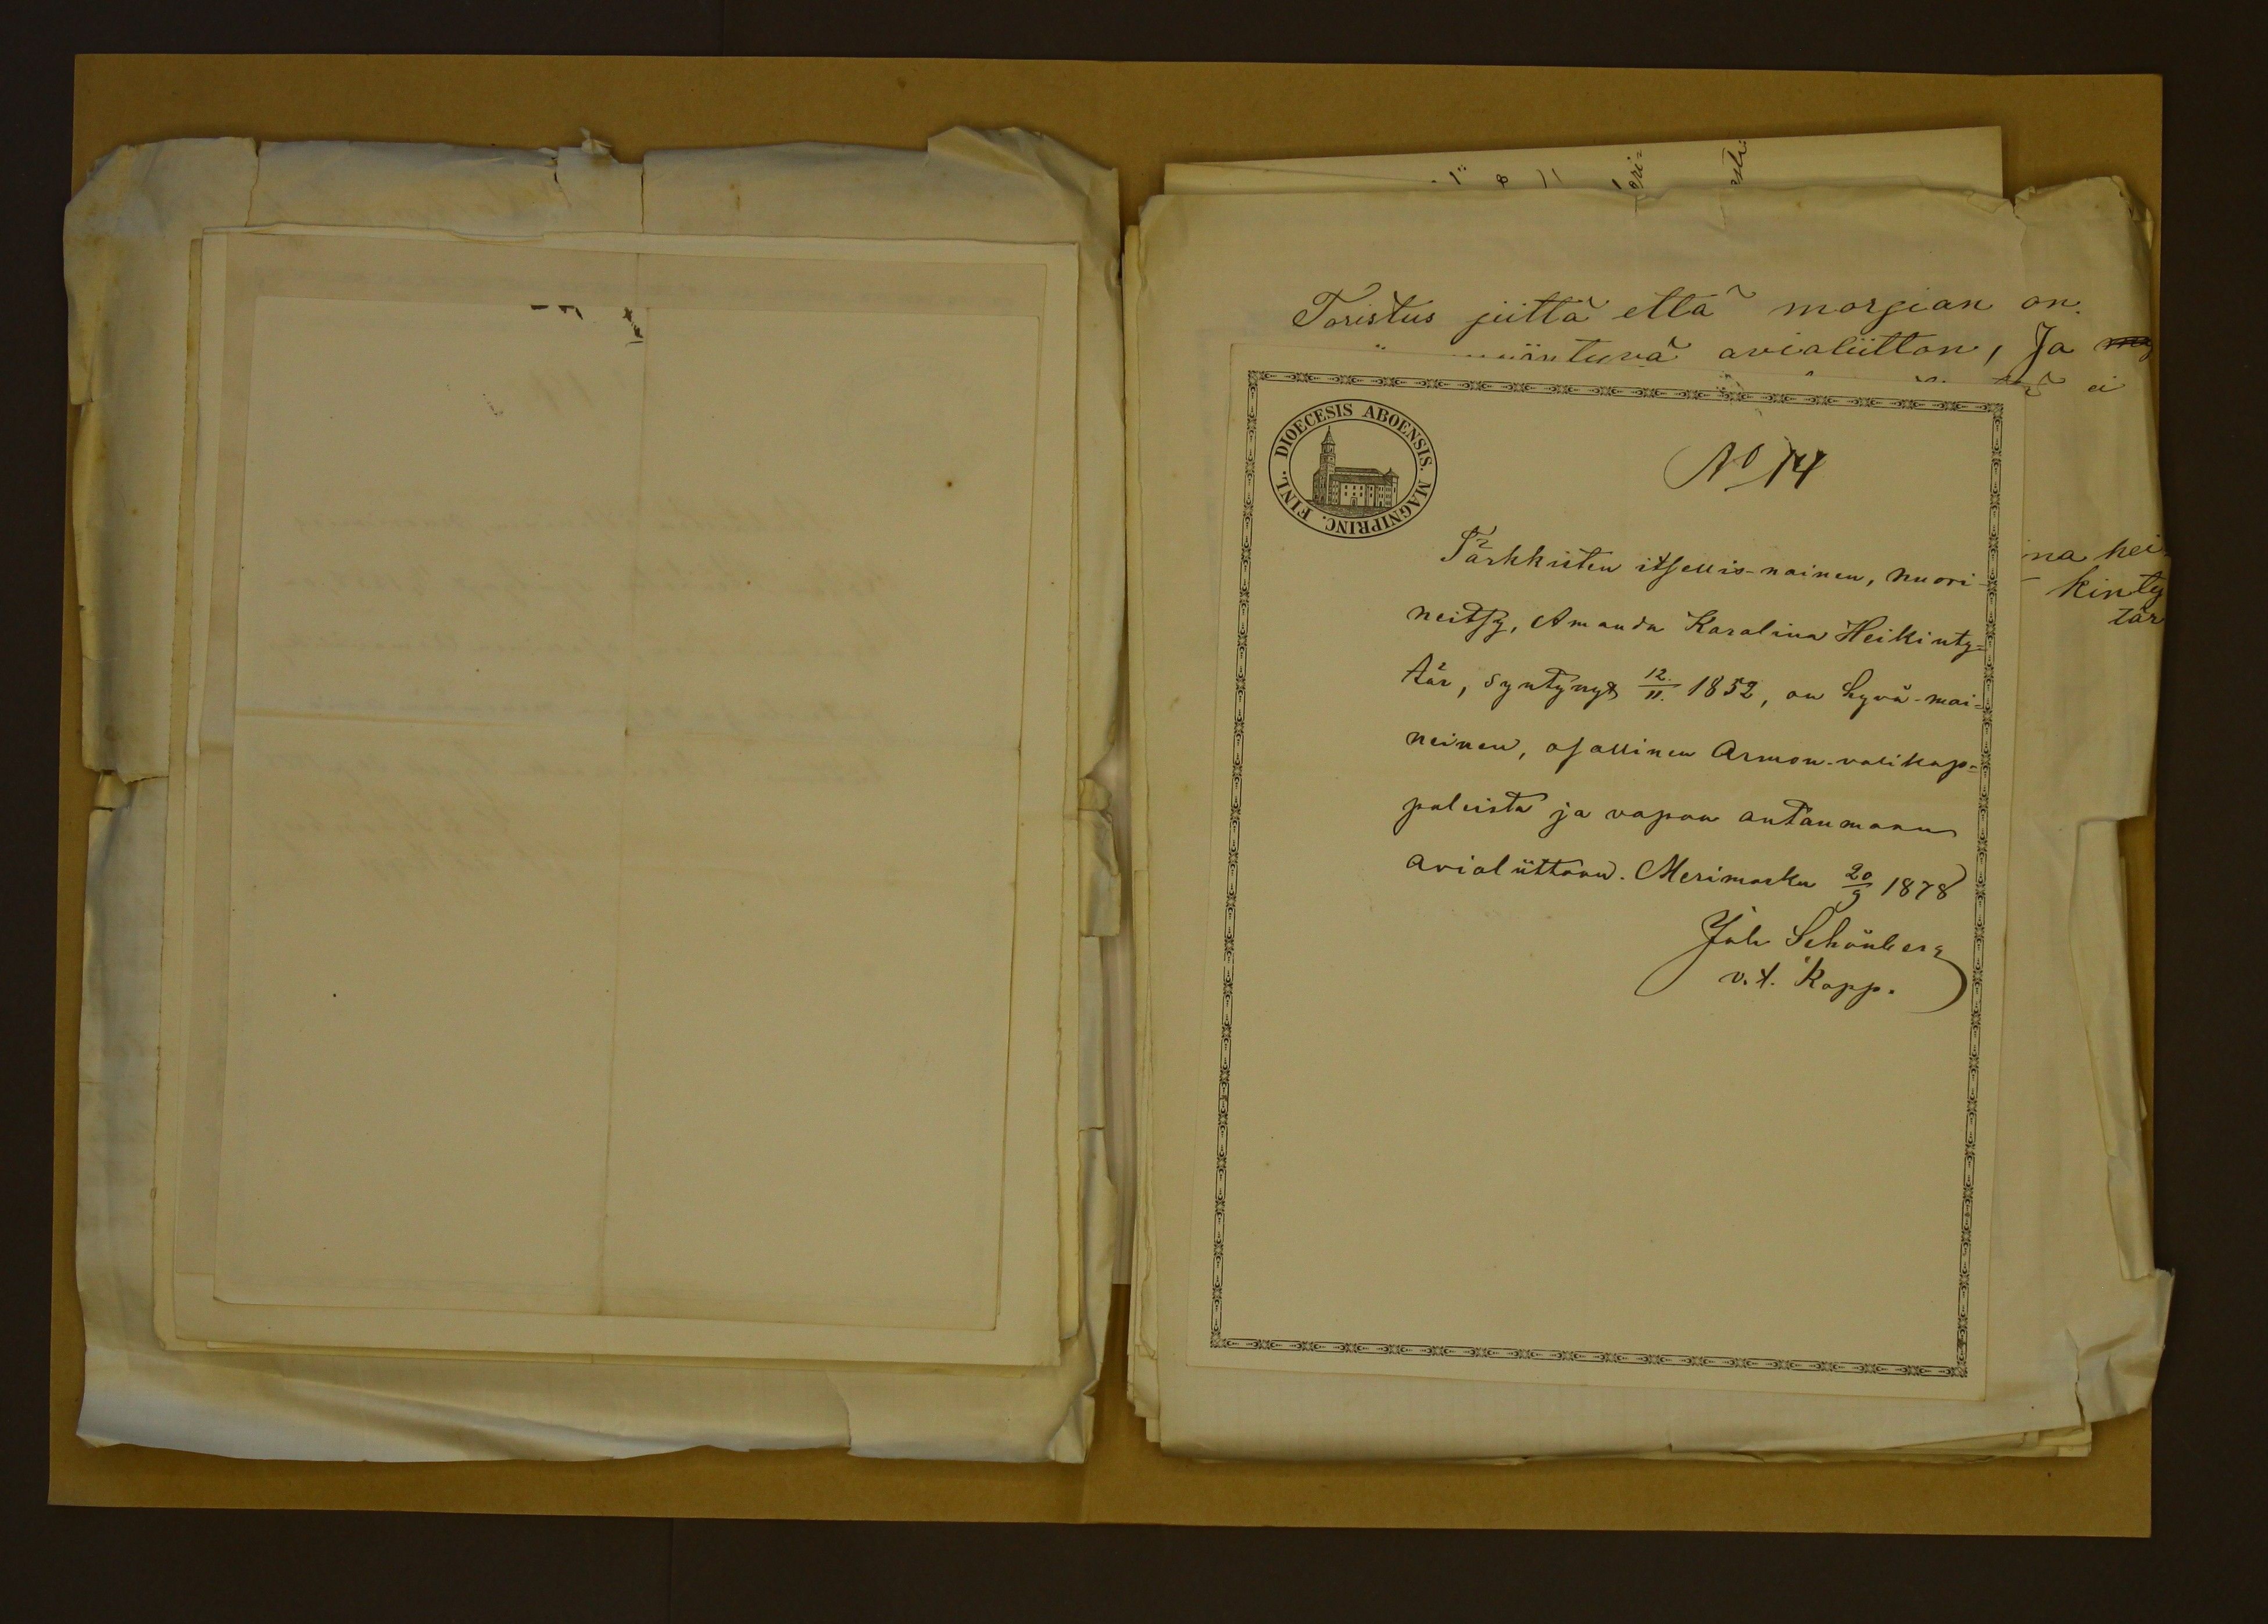 Toristus siittä että morsian on
avioliitton, Ja
ei
DIOECESIS ABOENSIS. MAGNIPRINC. FINL.
No 14
Tärkkisten itsellis-nainen, nuori-
neitsy, Amanda Karolina Heikinty=
tär, syntynyt 12./11. 1852, on hyvä-mai=
neinen, osallinen Armon-valikap=
paleista ja vapaa antaumaan
avioliittoon. Merimasku 20/9 1878
Joh Schönberg
v.t. Kapp.
na hei
kinty
tär